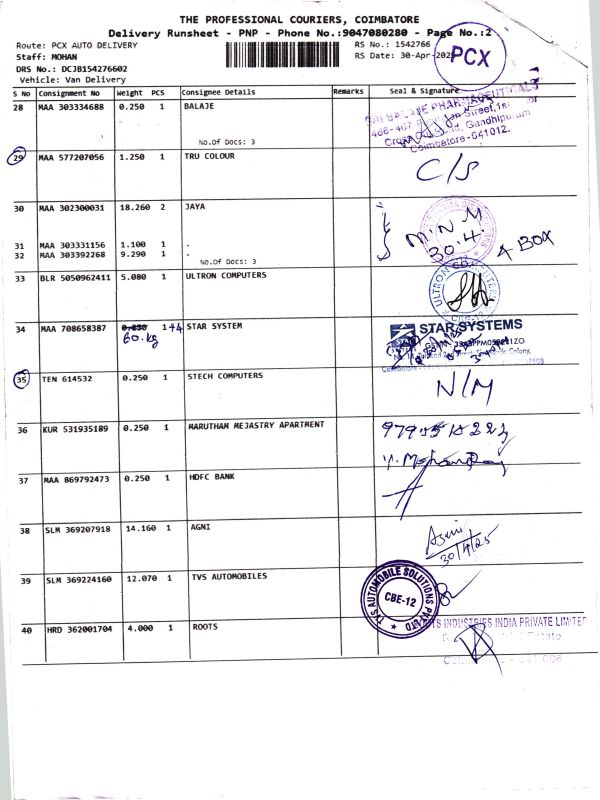 THE PROFESSIONAL COURIERS, COIMBATORE
Delivery Runsheet - PNP - Phone No.:9047080280 - Page No.:2
Route: PCX AUTO DELIVERY
RS No.: 1542766
PCX
Staff: MOHAN
RS Date: 30-Apr-2025
DRS No.: DCJB154276602
Vehicle: Van Delivery
S No Consignment No Weight PCS Consignee Details Remarks Seal & Signature
28 MAA 303334688 0.250 1 BALAJE
No.Of Docs: 3
SRI BALAJE PHARMACEUTICALS
Gandhipuram
Coimbatore-641012.
29 MAA 577207056 1.250 1 TRU COLOUR C/S
30 MAA 302300031 18.260 2 JAYA
M.N.M
30.4.
4 BOX
31 MAA 303331156 1.100 1 .
32 MAA 303392268 9.290 1 .
No.Of Docs: 3
33 BLR 5050962411 5.080 1 ULTRON COMPUTERS
34 MAA 708658387 0.250 1+4 STAR SYSTEM
60.kg
STAR SYSTEMS
35 TEN 614532 0.250 1 STECH COMPUTERS N/M
36 KUR 531935189 0.250 1 MARUTHAM MEJASTRY APARTMENT
37 MAA 869792473 0.250 1 HDFC BANK
38 SLM 369207918 14.160 1 AGNI
30/4/25
39 SLM 369224160 12.070 1 TVS AUTOMOBILES
TVS AUTOMOBILE SOLUTIONS PVT LTD
CBE-12
40 HRD 362001704 4.000 1 ROOTS
INDUSTRIES INDIA PRIVATE LIMITED